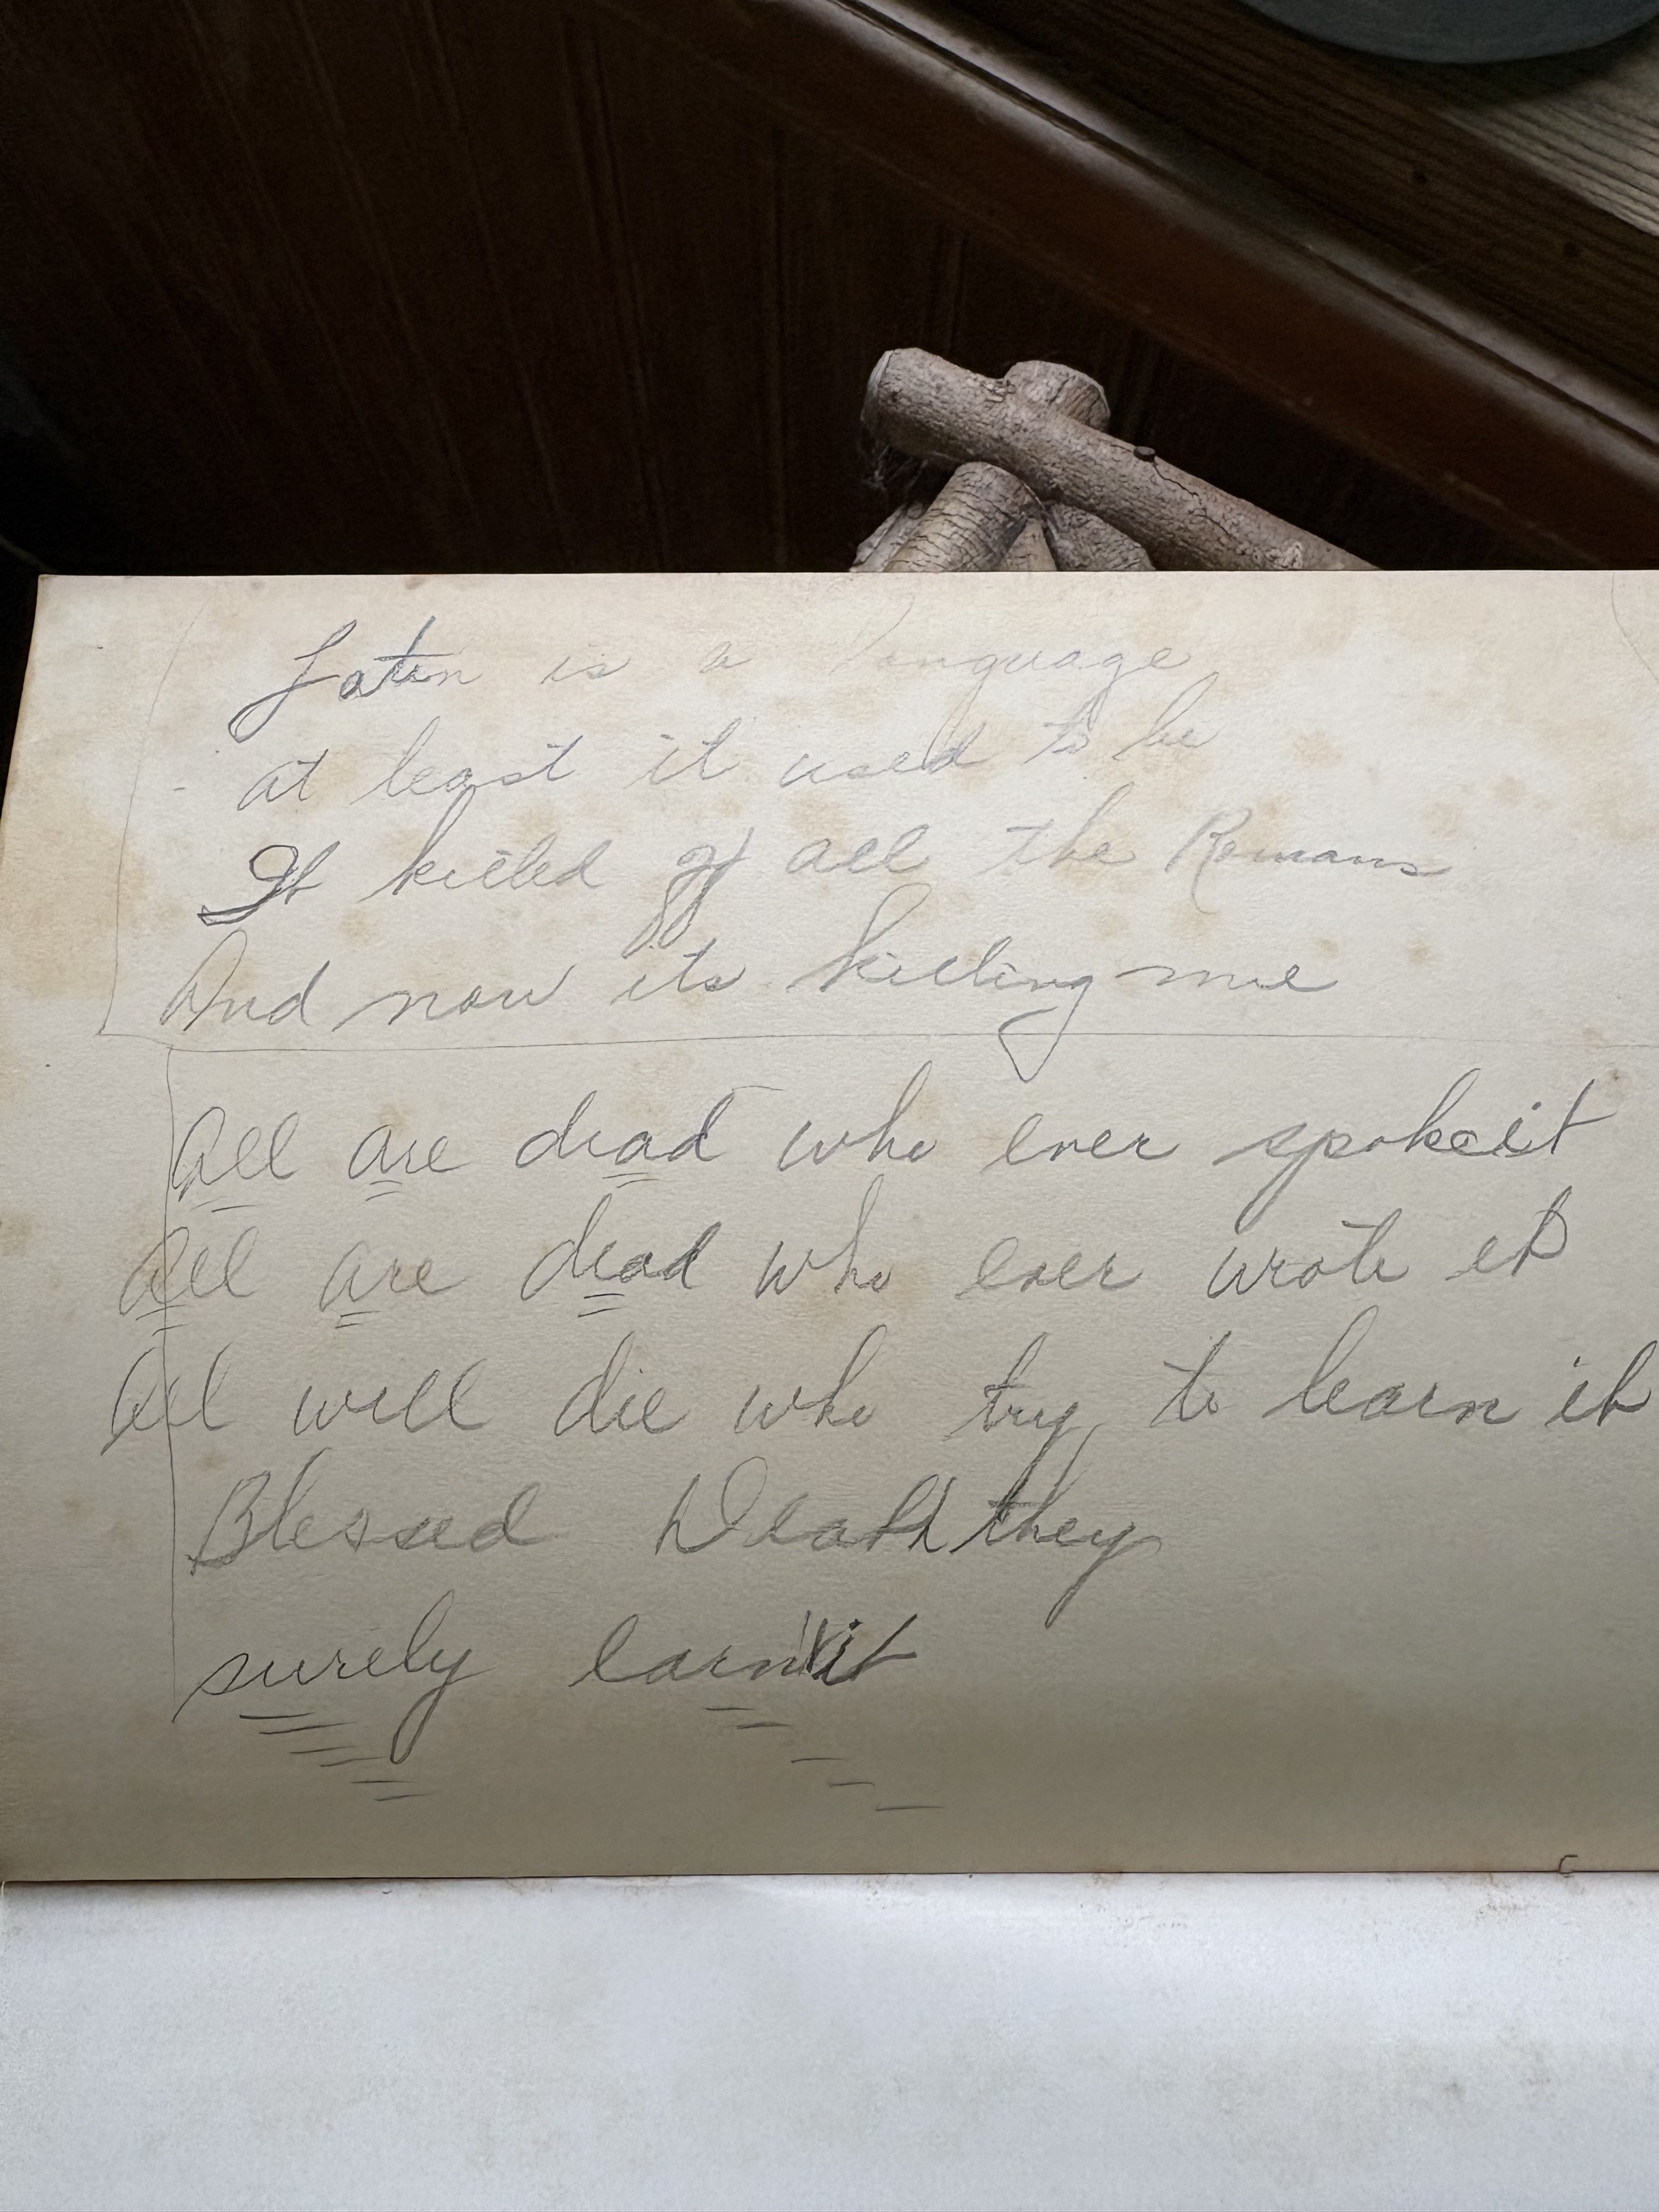 Latin is a language
at least it used to be
It killed off all the Romans
And now its killing me
All are dead who ever spoke it
All are dead who ever wrote it
All will die who try to learn it
Blessed Death they
surely earn it